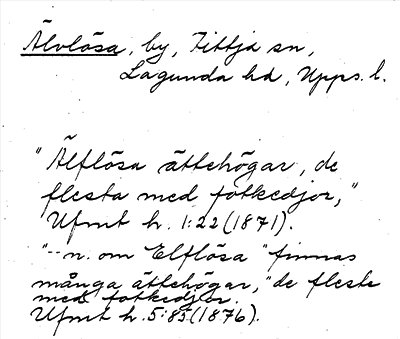 Älvlösa, by, Fittja sn,
Lagunda hd, Upps. l.
"Älflösa ättehögar, de
flesta med fotkedjor,"
Ufmt h. 1:22 (1871).
"-- n. om Elflösa "finnas
många ättehögar," de flesta
med fotkedjor.
Ufmt h. 5:85 (1876).